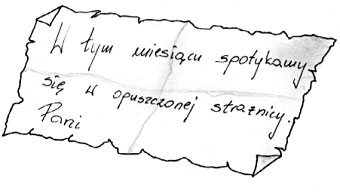 W tym miesiącu spotykamy
się w opuszczonej strażnicy.
Pani